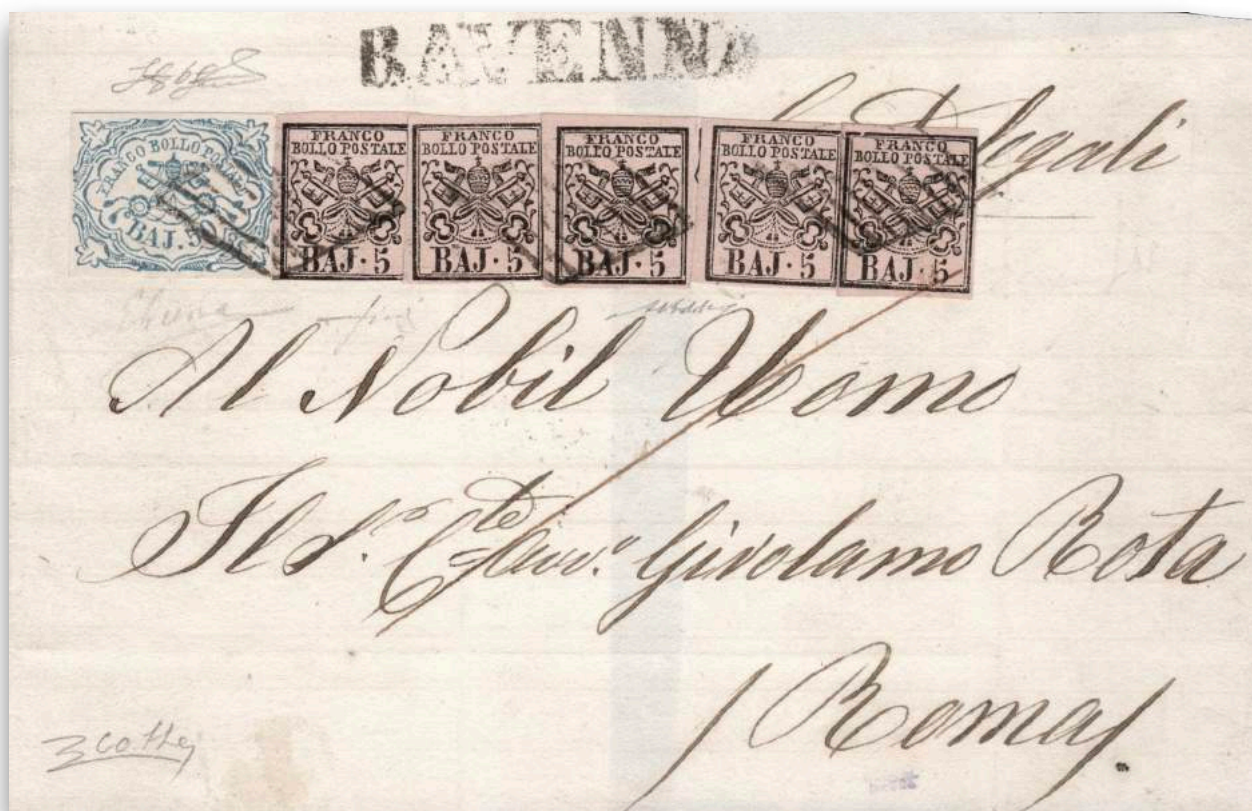 RAVENNA
Legali
FRANCO BOLLO POSTALE
BAJ. 50
FRANCO
BOLLO POSTALE
BAJ · 5
FRANCO
BOLLO POSTALE
BAJ · 5
FRANCO
BOLLO POSTALE
BAJ · 5
FRANCO
BOLLO POSTALE
BAJ · 5
FRANCO
BOLLO POSTALE
BAJ · 5
Al Nobil Uomo
Il Sr. Cte Avv.o Girolamo Rota
Roma